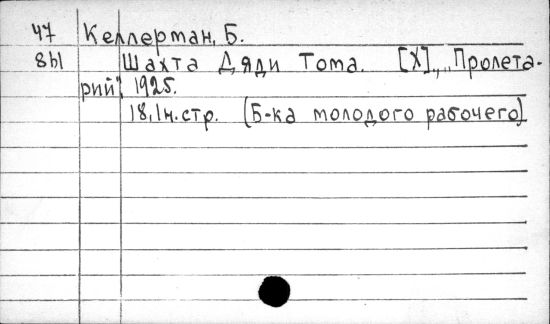 47 Келлерман, Б.
8Ы Шахта Дяди Тома. [Х]., „Пролета-
рий", 1925.
18,1н.стр. (Б-ка молодого рабочего)